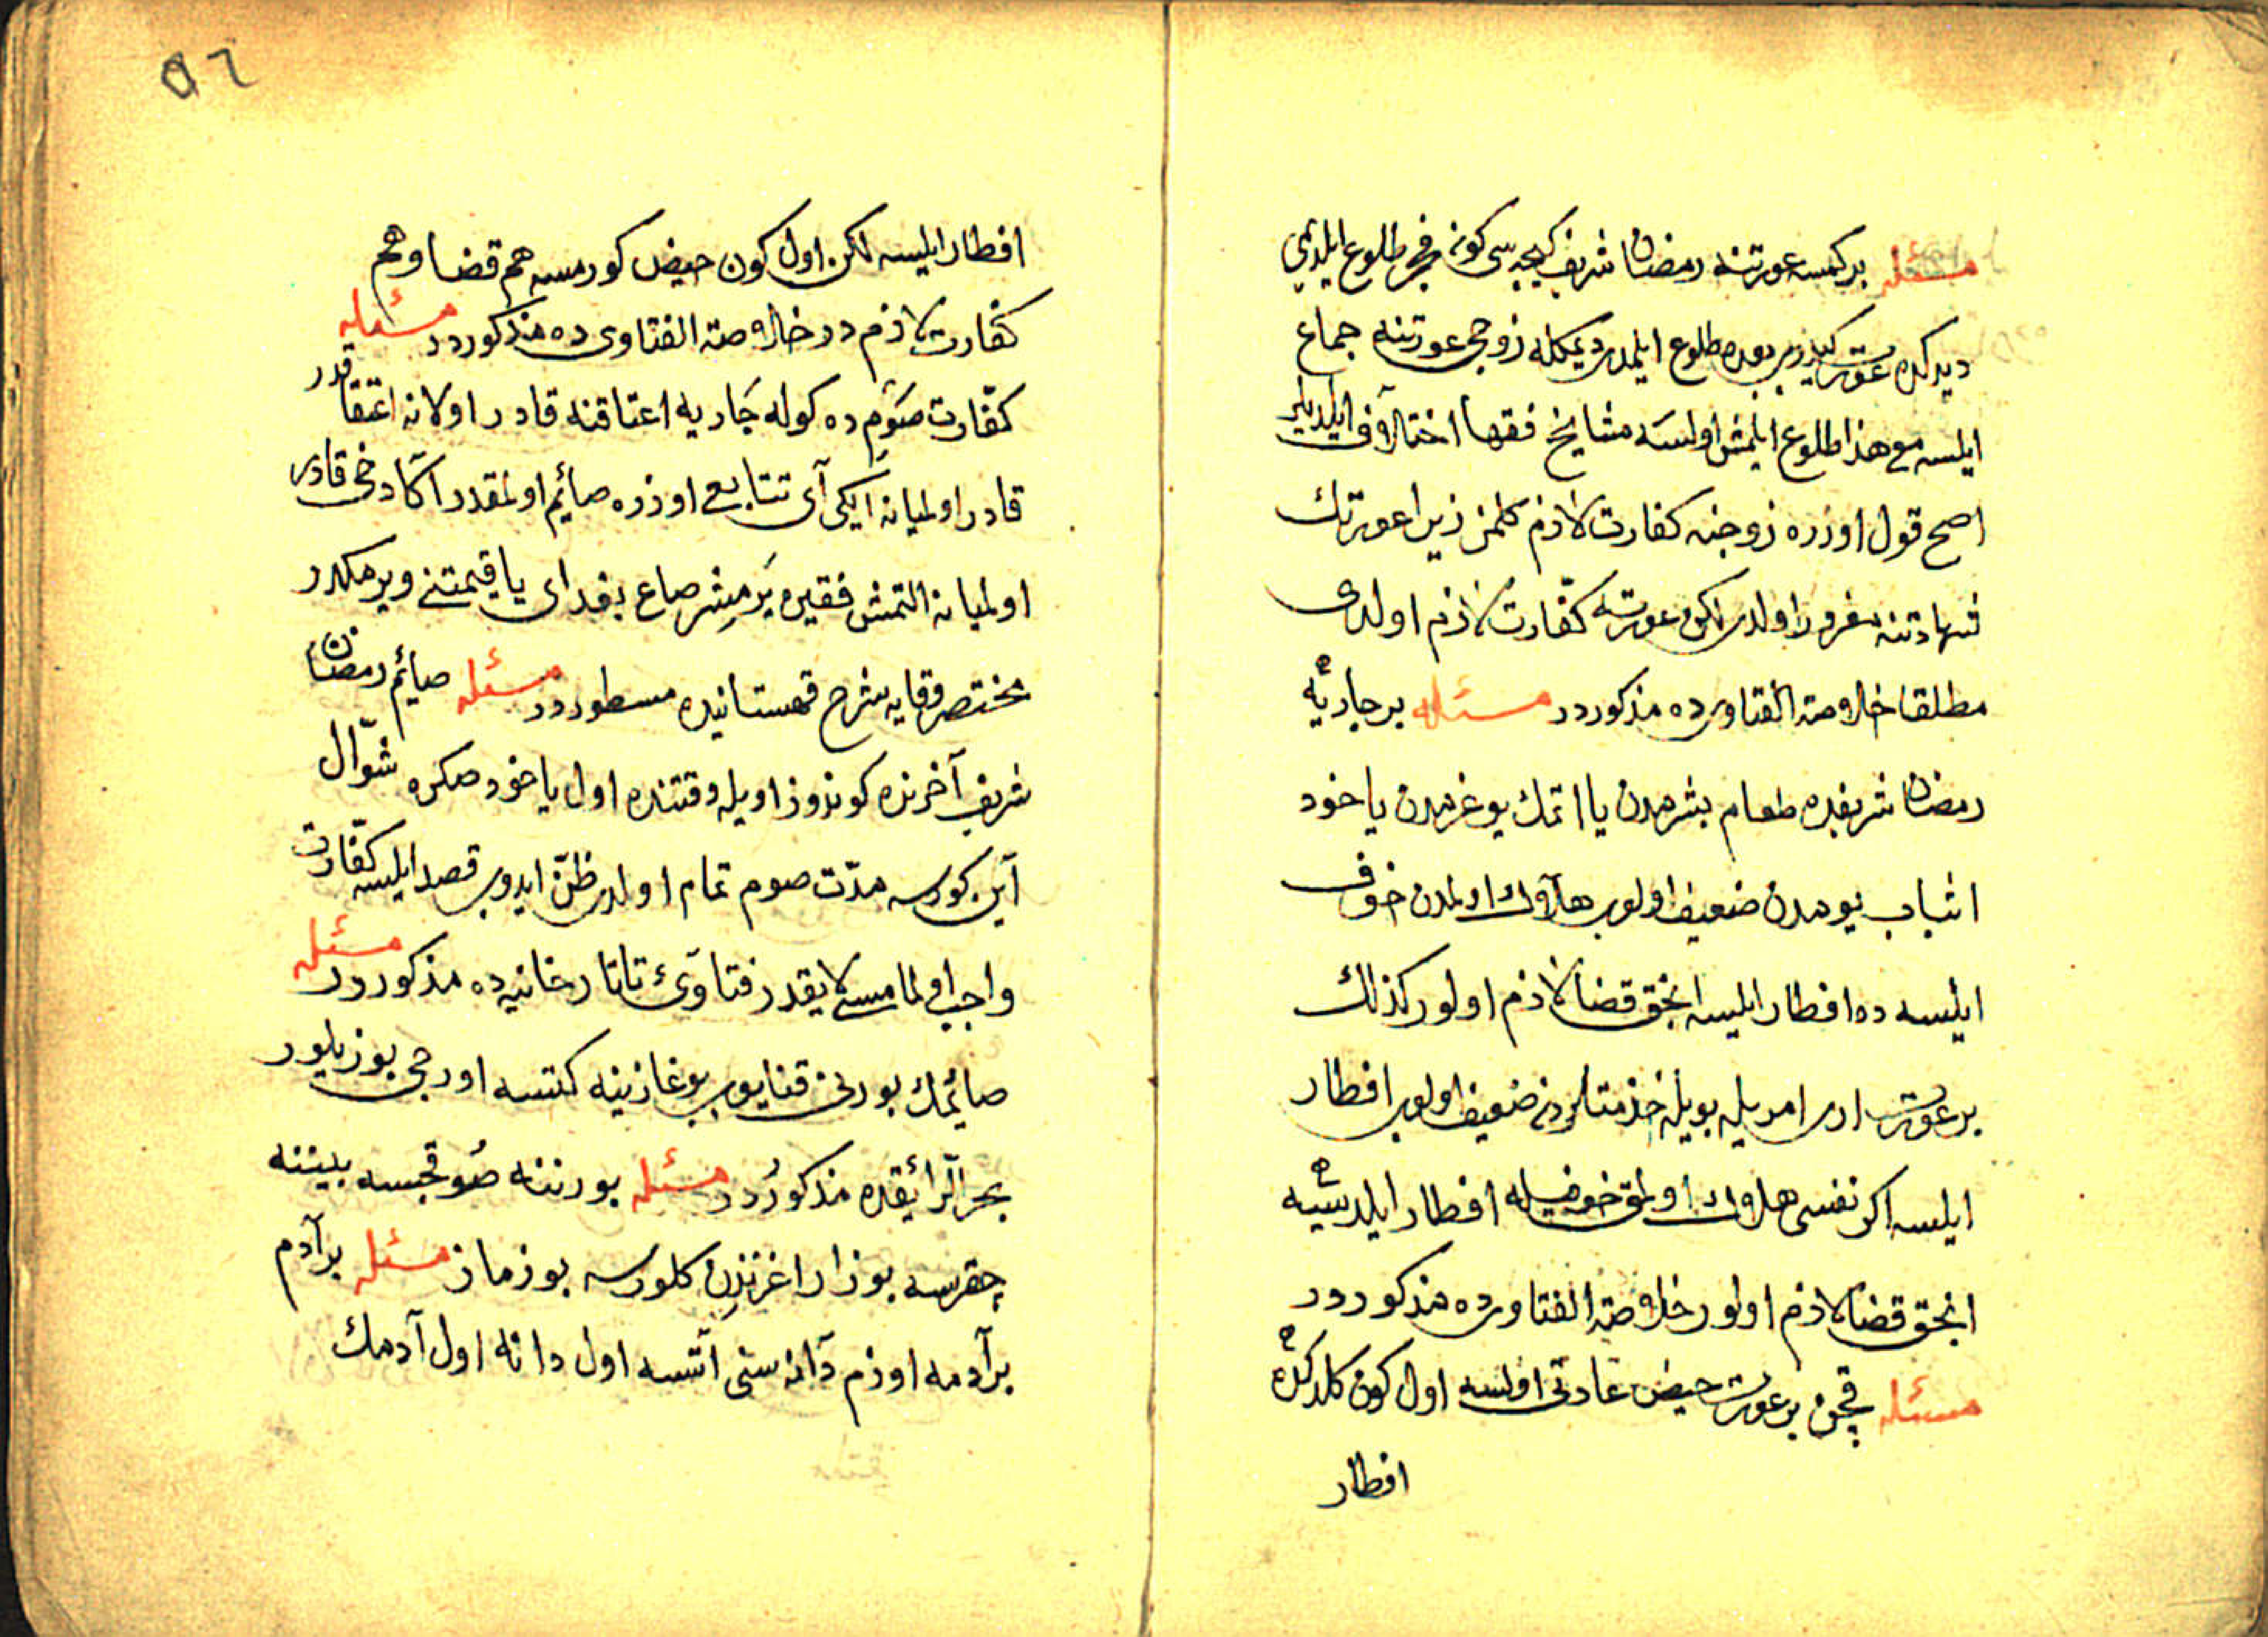 مسئله بر کمسه عورتنه رمضان شریف کیجه سی کونه فجر طلوع ایلدیمی
دیدکده عورت کیدوب بعده طلوع ایلمدی دیمکله زوجی عورتنه جماع
ایلسه مع هذا طلوع ایلمش اولسه مشایخ فقها اختلاف ایلدیلر
اصح قول اوزره زوجنه کفارت لازم کلمز زیرا عورتك
شهادتنه مغرور اولدی لکن عورته کفّارت لازم اولدی
مطلقا خلاصة الفتاویده مذکوردر مسئله بر جاریه
رمضان شریفده طعام بشرمدن یا اتمك یوغرمدن یا خود
اثباب یومدن ضعیف اولوب هلاك اولمدن خوف
ایلسه ده افطار ایلیسه انجق قضا لازم اولور کذلك
بر عورت اری امریله بویله خذمتلردن ضعیف اولوب افطار
ایلسه اکر نفسی هلاك اولمق خوفیله افطار ایلدیسه
انجق قضا لازم اولور خلاصة الفتاویده مذکوردر
مسئله قچن بر عورت حیض عادتی اولسه اول کون کلدکده
افطار
٥٦
افطار ایلیسه لکن اول کون حیض کورمسه هم قضا و هم
کفارت لازم در خلاصة الفتاوی ده مذکوردر مسئله
کفّارت صَوْم ده کوله جَاریه اعتاقنه قادر اولانه اعتقا قدر
قادر اولمیانه ایکی آی تتابع اوزره صائم اولمقدر اکا دخی قادر
اولمیانه التمش فقیره یَرمِشر صاع بغدای یا قیمتنی ویرمکدر
مختصر وقایه شرح قهستانیده مسطوردر مسئله صیائم رمضان
شریف آخرنده کوندوز اویله وقتنده اول یا خود صکره شوّال
آین کورسه مدّت صوم تمام اولدی ظنّ ایدوب قصد ایلیسه کفّارت
واجب اولمامسی لایقدر فتاوئ تاتارخانیه ده مذکوردر مسئله
صائمك بورنی قنایوب بوغازینه کتسه اورجی بوزیلور
بحر الرائقده مذکورُدر مسئله بورننه صُو قچسه بیننه
چقرسه بوزار اغزندن کلورسه بوزماز مسئله بر آدم
بر آدمه اوزم دَانه سنی اتسه اول دانه اول آدمك